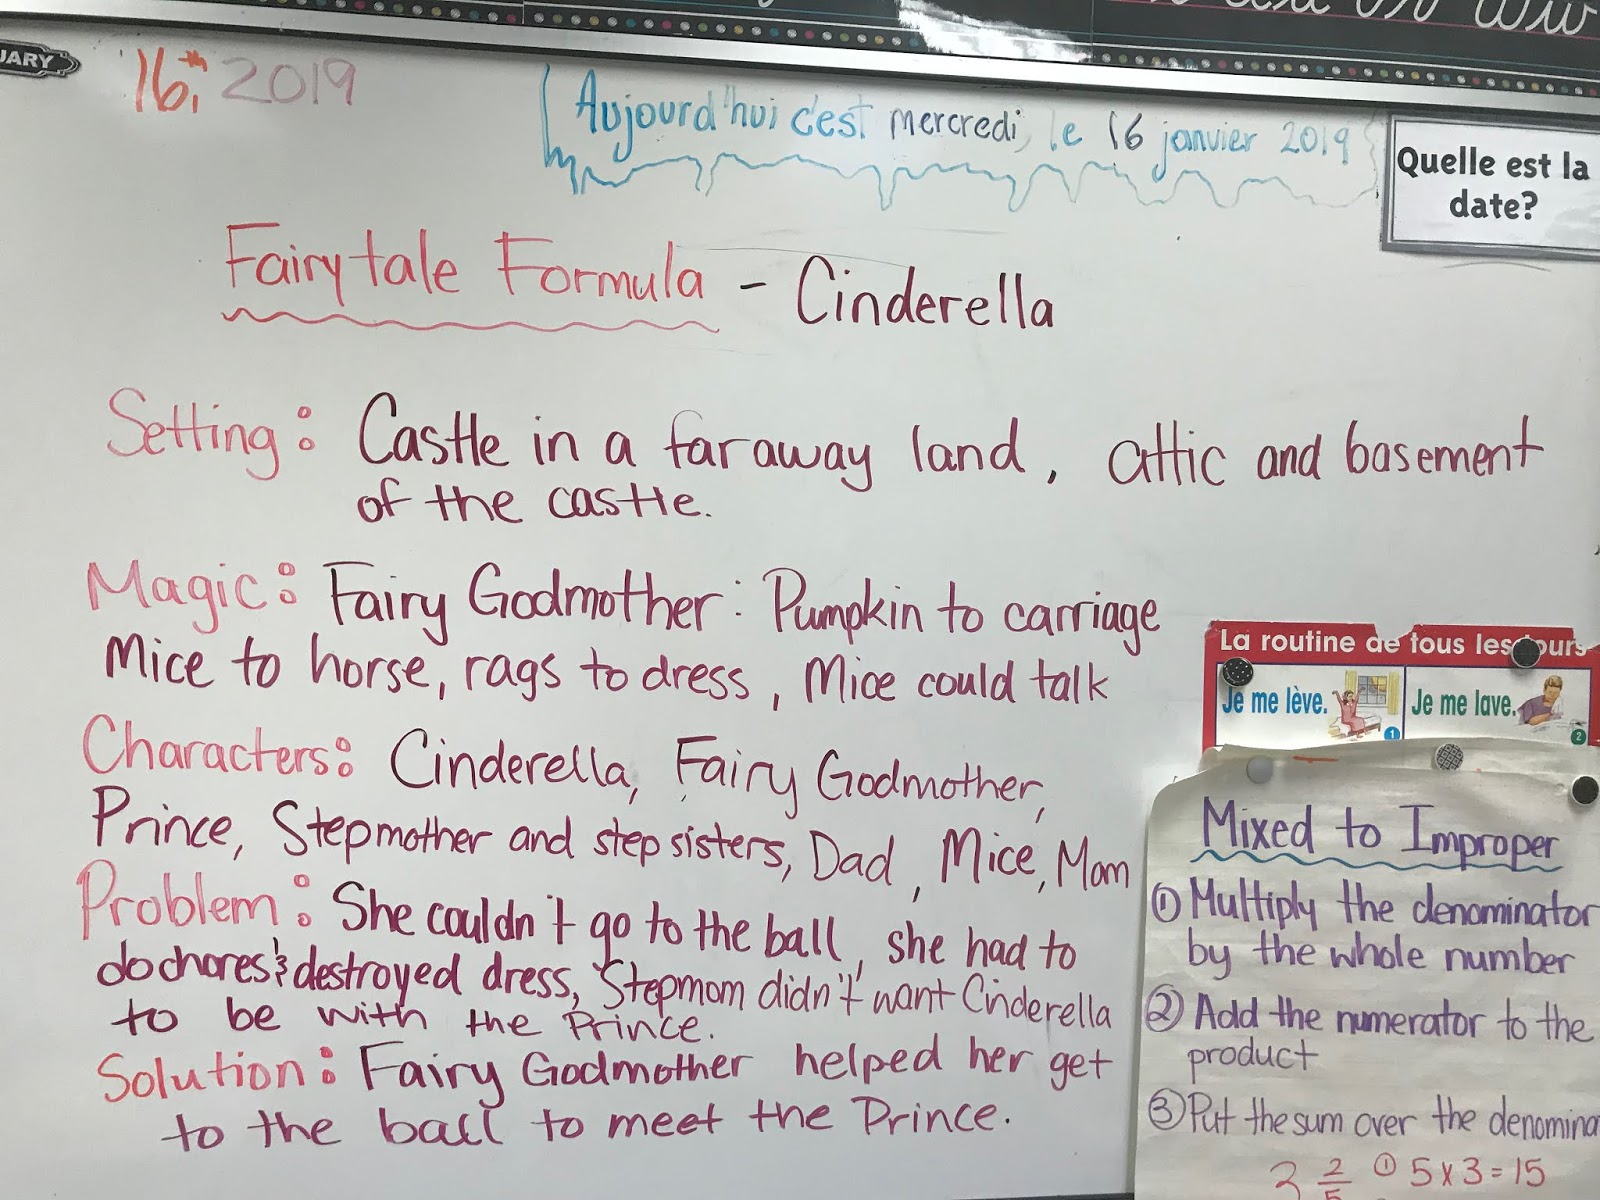 UARY
16th, 2019
Aujourd'hui c'est mercredi, le 16 janvier 2019
Quelle est la
date?
Fairytale Formula - Cinderella
Setting: Castle in a far away land, attic and basement
of the castle.
Magic: Fairy Godmother: Pumpkin to carriage
Mice to horse, rags to dress, Mice could talk
Characters: Cinderella, Fairy Godmother,
Prince, Stepmother and step sisters, Dad, Mice, Mom
Problem: She couldn't go to the ball, she had to
do chores & destroyed dress, Stepmom didn't want Cinderella
to be with the Prince.
Solution: Fairy Godmother helped her get
to the ball to meet the Prince.
La routine de tous les ours
Je me lève. 1
Je me lave. 2
Mixed to Improper
① Multiply the denominator
by the whole number
② Add the numerator to the
product
③ Put the sum over the denomina
3 2/5 ① 5 x 3 = 15